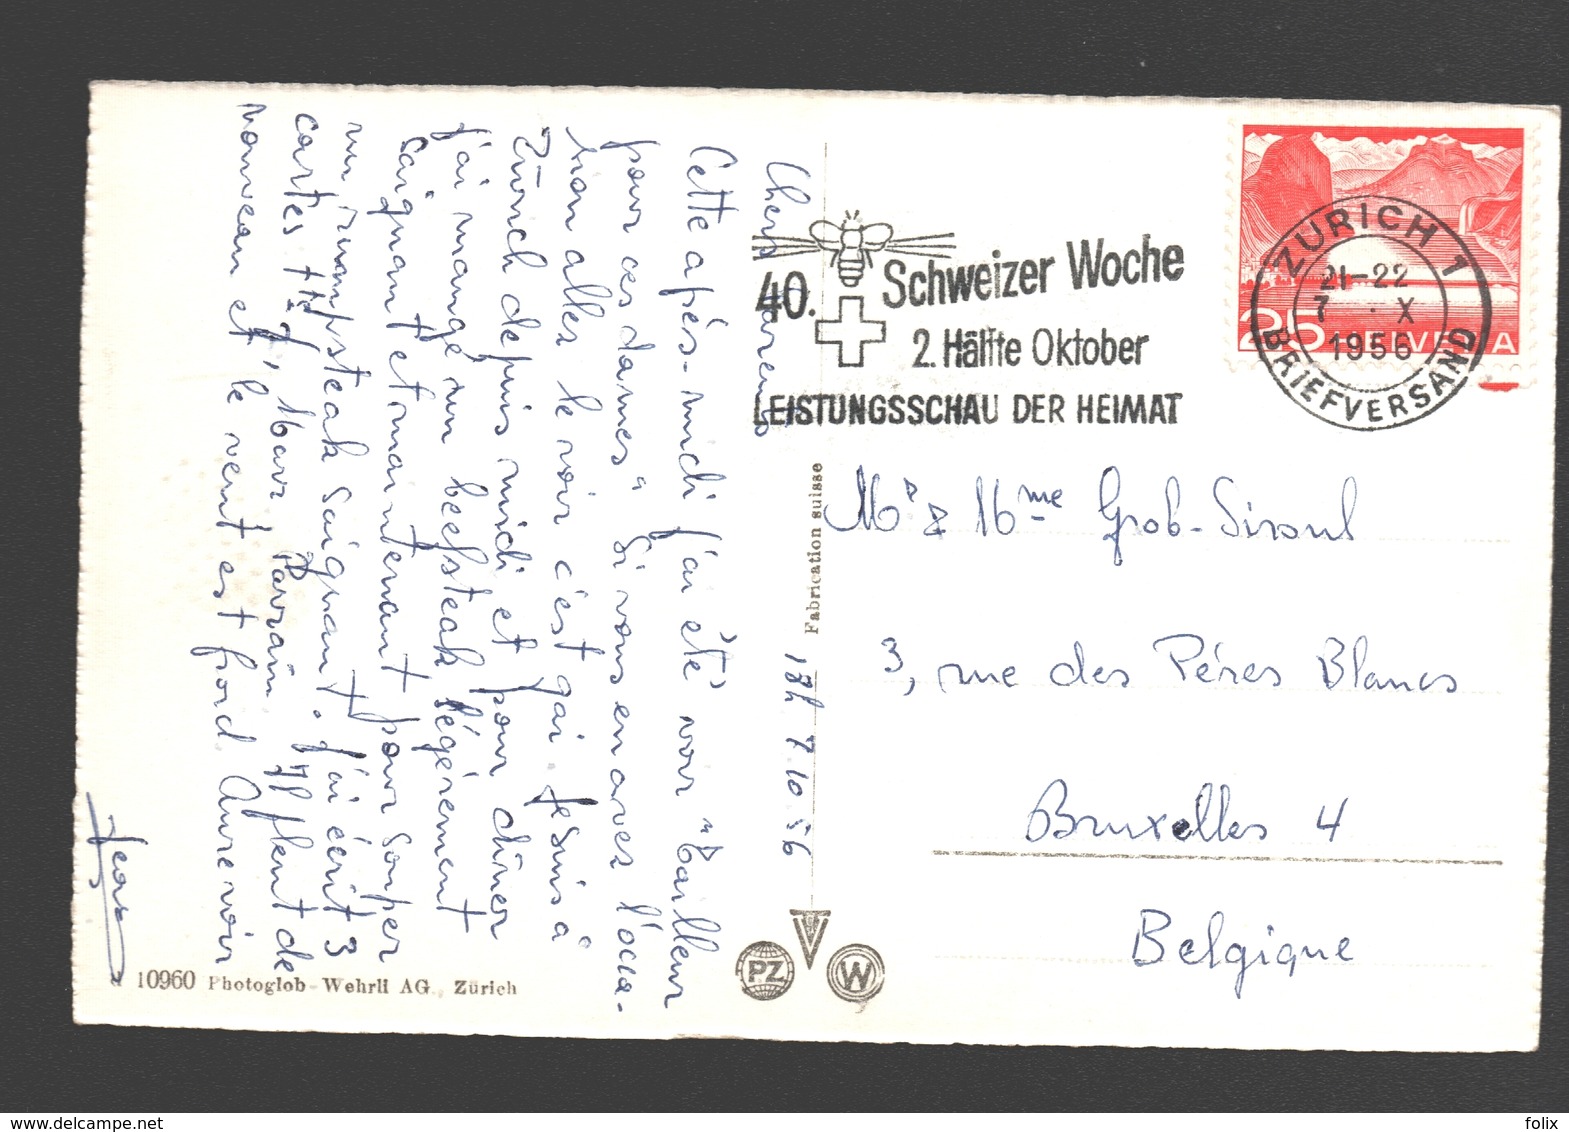 18h 7.10.56
Chers Parents
Cette après-midi j'ai été voir "Tailleur
pour ces dames" Si vous en avez l'occa-
sion allez le voir c'est gai. Je suis à
Zürich depuis midi et pour dîner
j'ai mangé un beefsteak légèrement
saignant et maintenant pour souper
un rumpsteak saignant. J'ai écrit 3
cartes
Parrain Il pleut de
nouveau et le vent est froid. Au revoir
Jean
40. Schweizer Woche
2. Hälfte Oktober
LEISTUNGSSCHAU DER HEIMAT
ZÜRICH 1
21-22
7 . X
1956
BRIEFVERSAND
25 HELVETIA
Fabrication suisse
Mr & Mme Grob-Siroul
3, rue des Pères Blancs
Bruxelles 4
Belgique
10960 Photoglob-Wehrli AG., Zürich
PZ
W
delcampe.net
felix